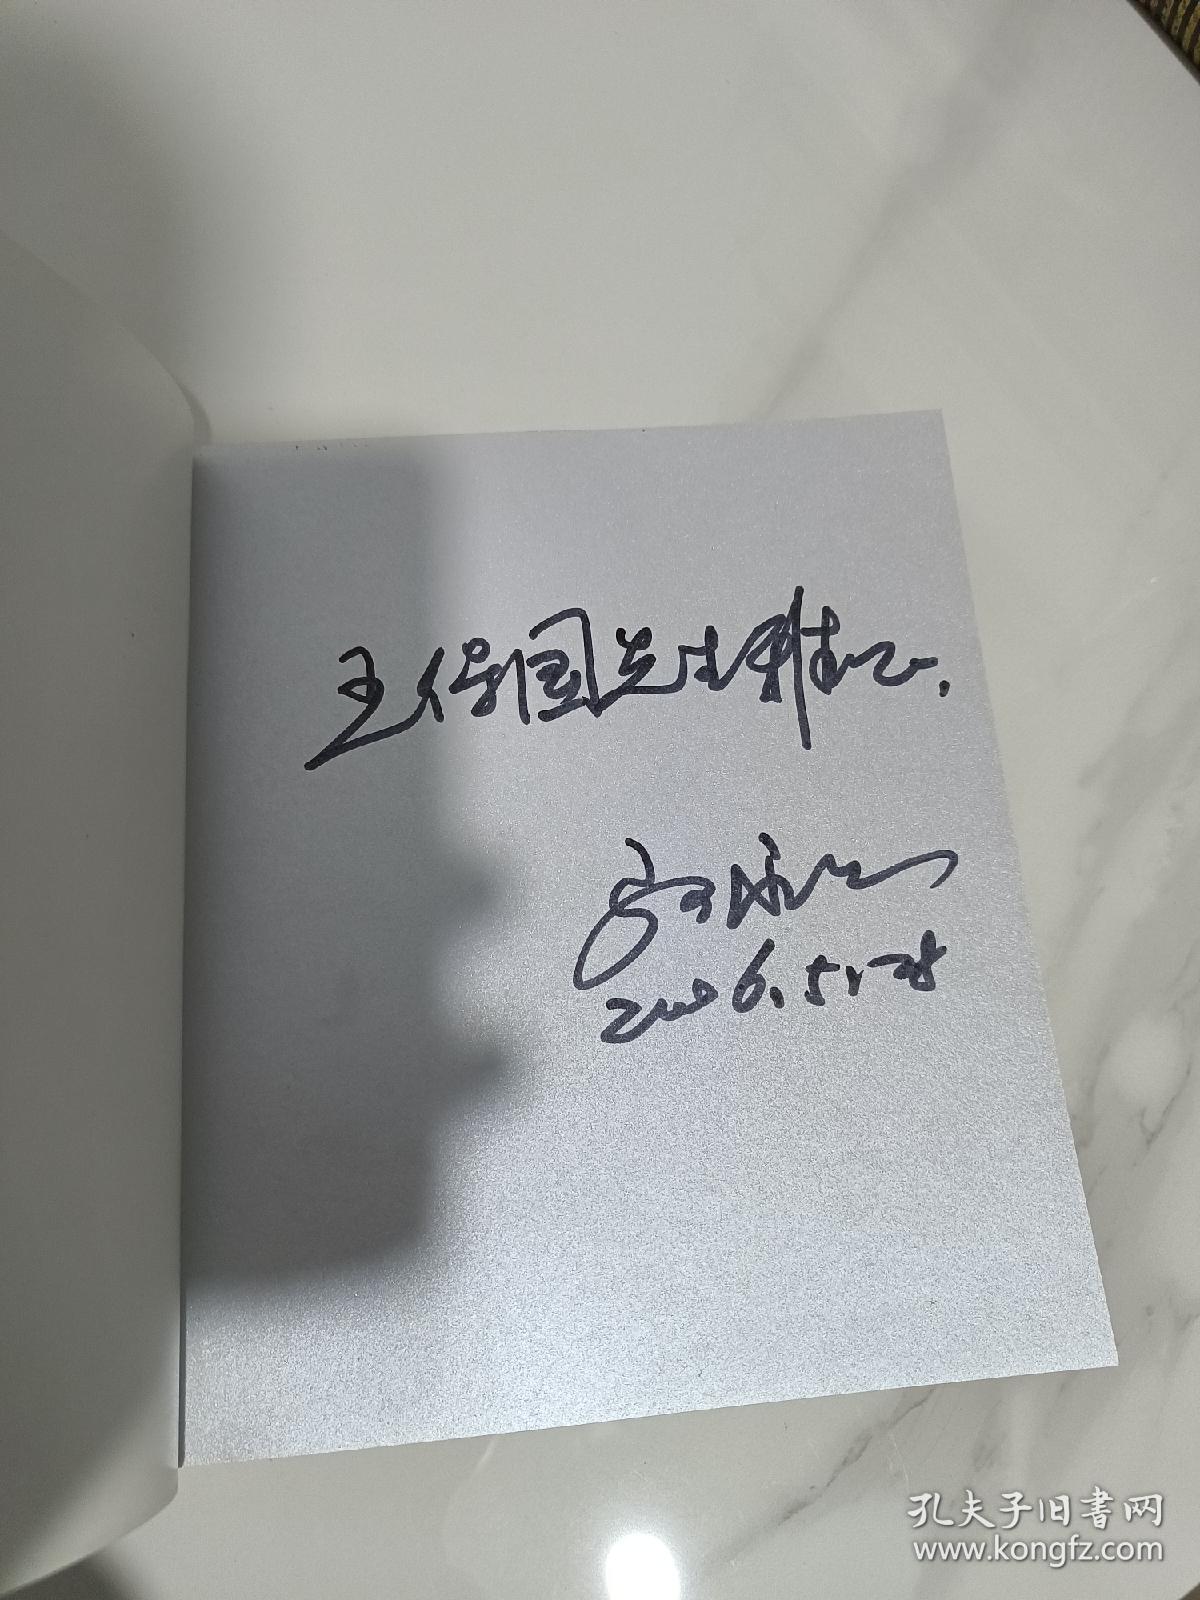 王保国先生雅正.
2006.5.28
孔夫子旧书网
www.kongfz.com